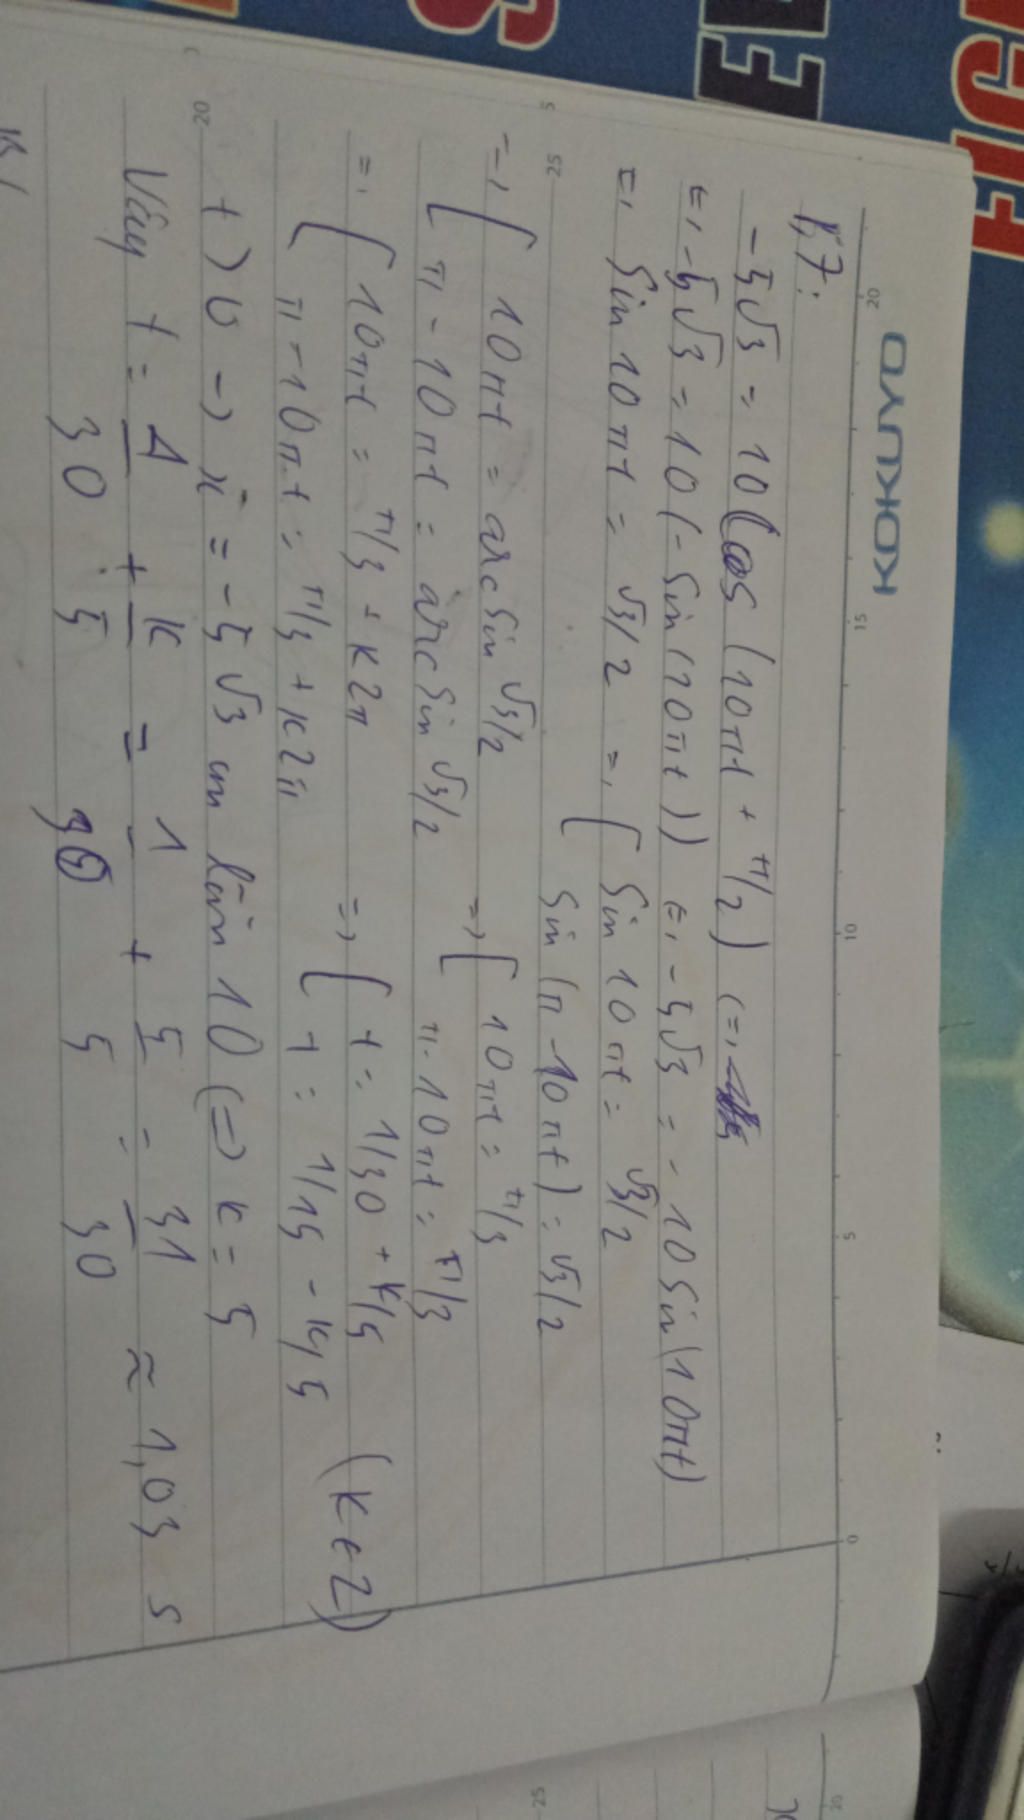 KOKUYO
20 15 10 5 0
57:
-5√3 = 10 cos (10πt + π/2) (=,
=, -5√3 = 10 (-sin(10πt)) =, -5√3 = -10 sin(10πt)
=, sin 10πt = √3/2 =, [ sin 10πt = √3/2
sin (π - 10πt) = √3/2
25
5
=, [ 10πt = arcsin √3/2 =, [ 10πt = π/3
π - 10πt = arcsin √3/2 π - 10πt = π/3
=, [ 10πt = π/3 + k2π =, [ t = 1/30 + k/5
π - 10πt = π/3 + k2π t = 1/15 - k/5 (k ∈ Z)
20
+) v -> x = -5√3 cm lần 10 (=) k = 5
Vậy t = 1/30 + k/5 = 1/30 + 5/5 = 31/30 ≈ 1,03 s
25
20